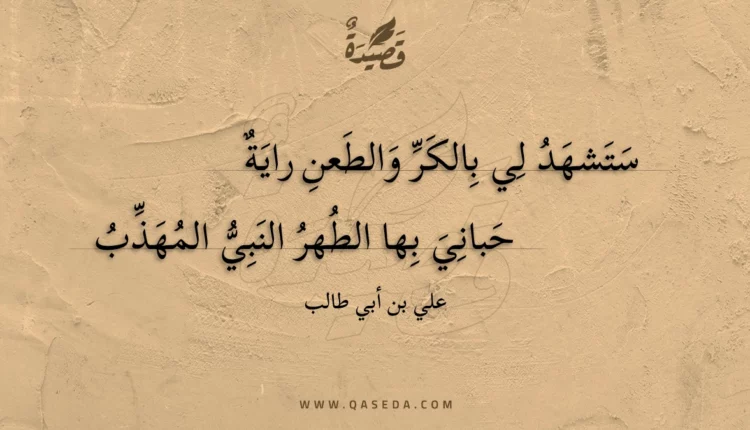 قَصِيدَةٌ
سَتَشهَدُ لِي بِالكَرِّ وَالطَعنِ رايَةٌ
حَبانِيَ بِها الطُهرُ النَبِيُّ المُهَذِّبُ
علي بن أبي طالب
WWW.QASEDA.COM